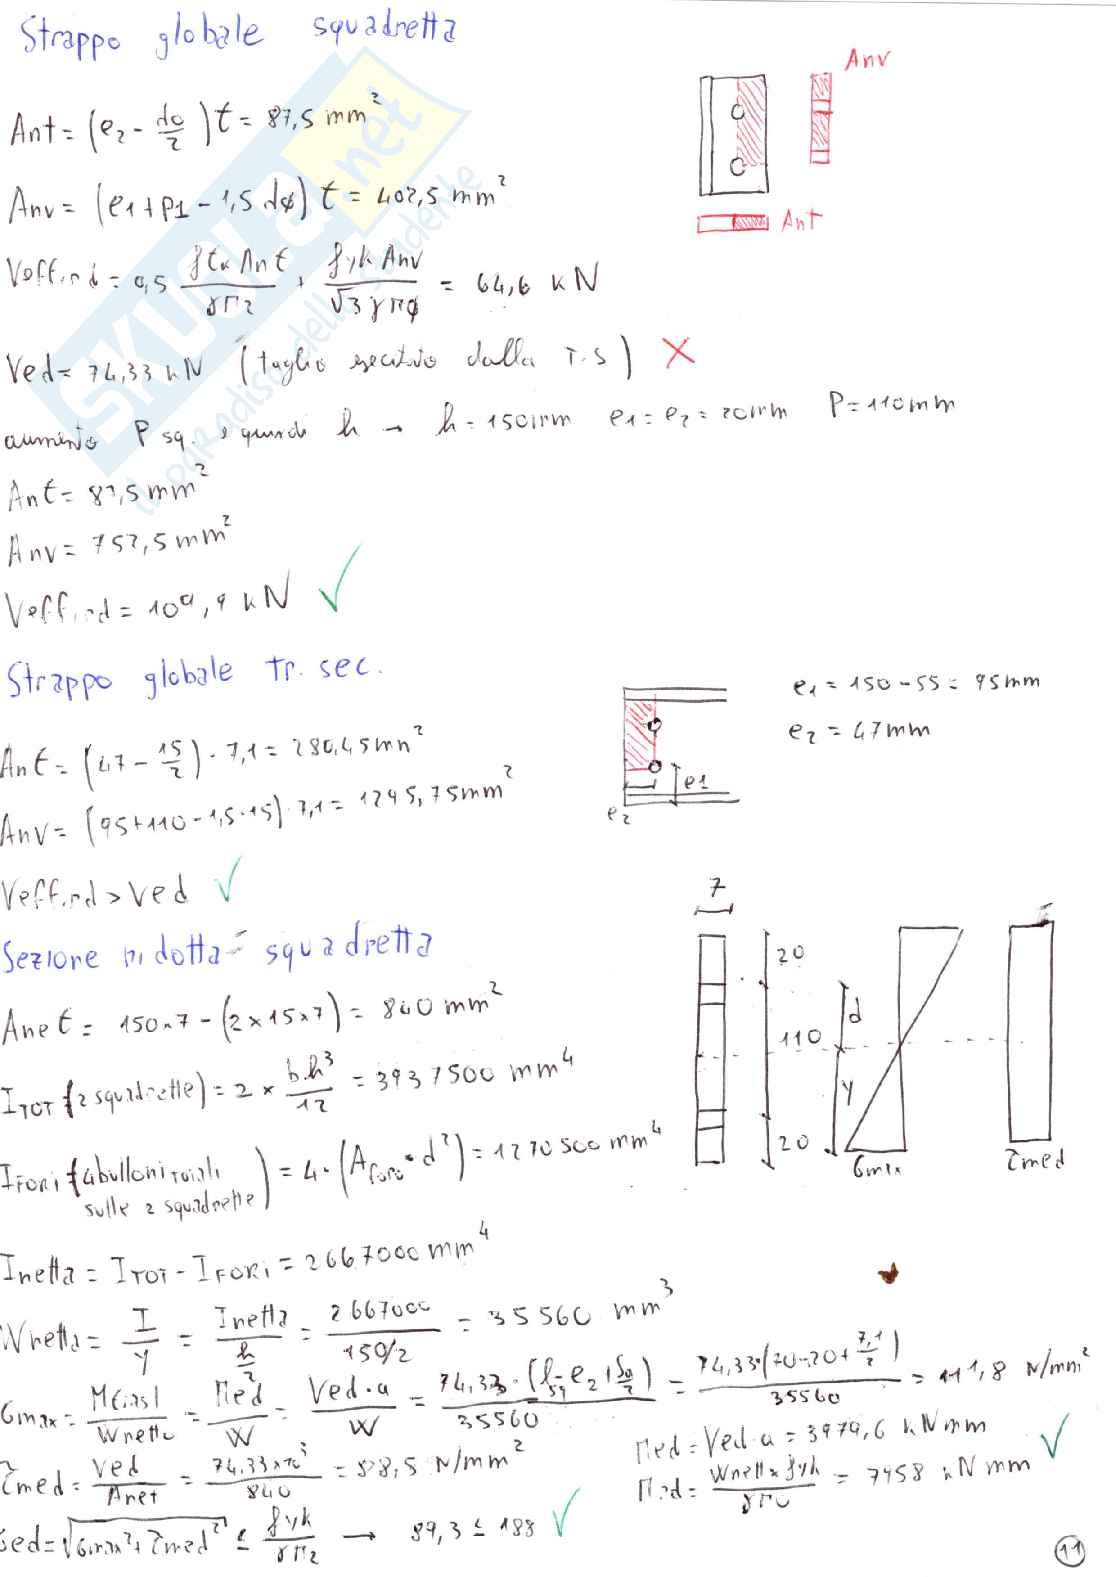 Strappo globale squadretta
Anv
Ant = (e2 - d0/2) t = 87,5 mm²
Anv = (e1 + p1 - 1,5 dφ) t = 402,5 mm²
Ant
Veff,rd = 0,5 ftk Ant / γM2 + fyk Anv / √3 γMφ = 64,6 kN
Ved = 74,33 kN (taglio dalla T.S) X
aumento P sq. e quindi h → h = 150mm e1 = e2 = 20mm P = 110mm
Ant = 87,5 mm²
Anv = 752,5 mm²
Veff,rd = 109,9 kN ✓
Strappo globale Tr. sec.
e1 = 150 - 55 = 95mm
e2 = 47mm
Ant = (47 - 15/2) · 7,1 = 280,45 mm²
e1
Anv = (95 + 110 - 1,5 · 15) · 7,1 = 1295,75 mm²
e2
Veff,rd > Ved ✓
7
Sezione ridotta squadretta
20
Anet = 150 × 7 - (2 × 15 × 7) = 840 mm²
d
110
ITOT (2 squadrette) = 2 × b·h³/12 = 3937500 mm⁴
y
20
σmax
τmed
IFORI (4 bulloni totali sulle 2 squadrette) = 4 · (Aforo · d²) = 1270500 mm⁴
Inetta = ITOT - IFORI = 2667000 mm⁴
Wnetta = I/y = Inetta / h/2 = 2667000 / 150/2 = 35560 mm³
σmax = / Wnetta = Med / W = Ved·a / W = 74,33 · / 35560 = 74,33 · (70 - 20 + 7,1/2) / 35560 = 111,8 N/mm²
Med = Ved·a = 3979,6 kNmm
τmed = Ved / Anet = 74,33 × 10³ / 840 = 88,5 N/mm²
Mrd = Wnett × fyk / γM0 = 7458 kNmm ✓
σed = √σmax² + τmed² ≤ fyk / γM2 → 89,3 ≤ 188 ✓
11
SKUOLA.net
il paradiso dello studente